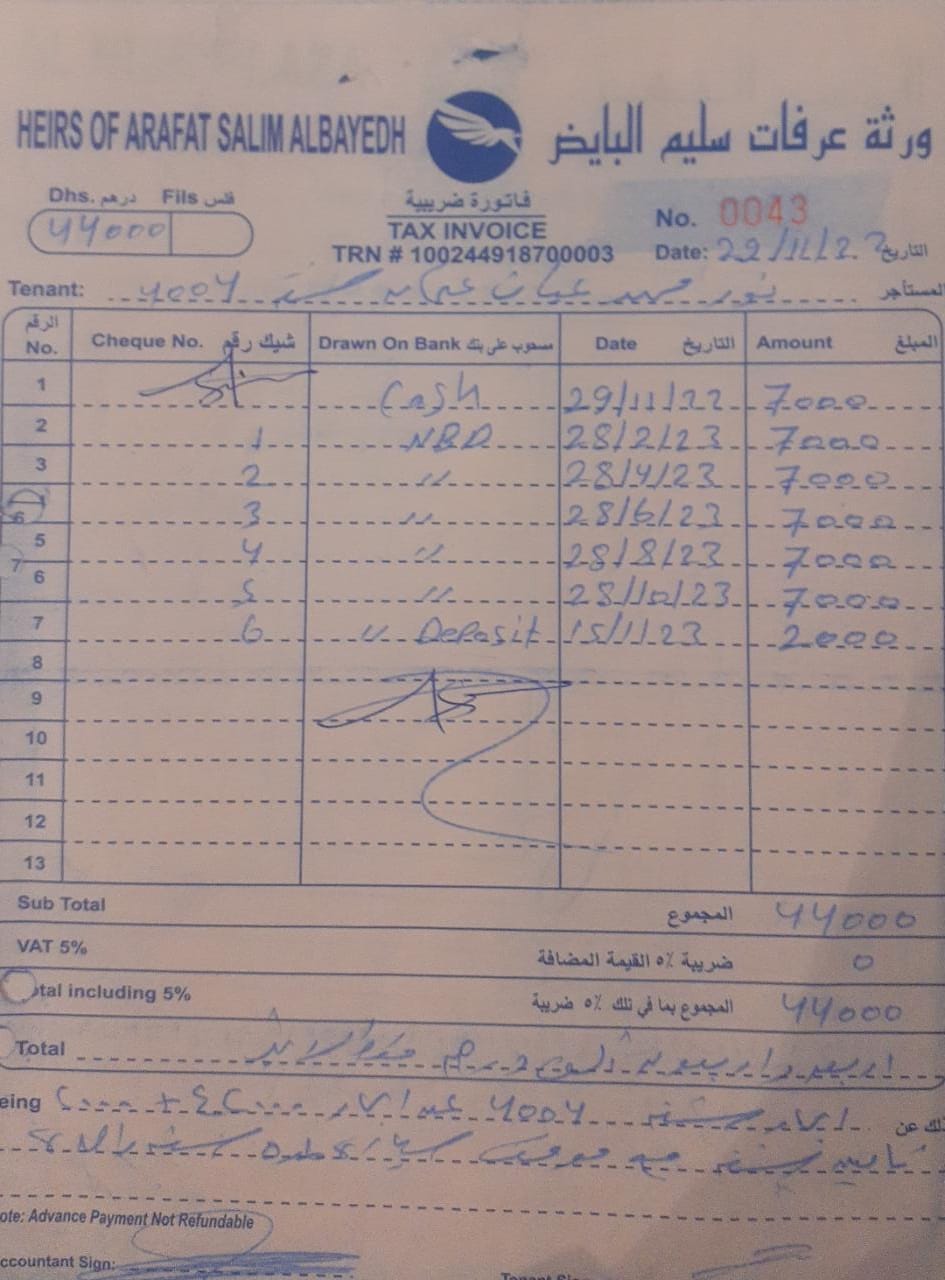 HEIRS OF ARAFAT SALIM ALBAYEDH ورثة عرفات سليم البايض
Dhs. درهم Fils فلس
44000
فاتورة ضريبية
TAX INVOICE
TRN # 100244918700003
No. 0043
Date: 29/11/22 التاريخ
Tenant: 4004 المستأجر
الرقم No. Cheque No. شيك رقم Drawn On Bank مسحوب على بنك Date التاريخ Amount المبلغ
1 Cash 29/11/22 7000
2 1 NBD 28/2/23 7000
3 2 " 28/4/23 7000
3 " 28/6/23 7000
5 4 " 28/8/23 7000
6 5 " 28/10/23 7000
7 6 " Deposit 15/11/23 2000
8
9
10
11
12
13
Sub Total المجموع 44000
VAT 5% ضريبة ٥٪ القيمة المضافة 0
otal including 5% المجموع بما في تلك ٥٪ ضريبة 44000
Total
eing 4004 لك عن
ote: Advance Payment Not Refundable
ccountant Sign: